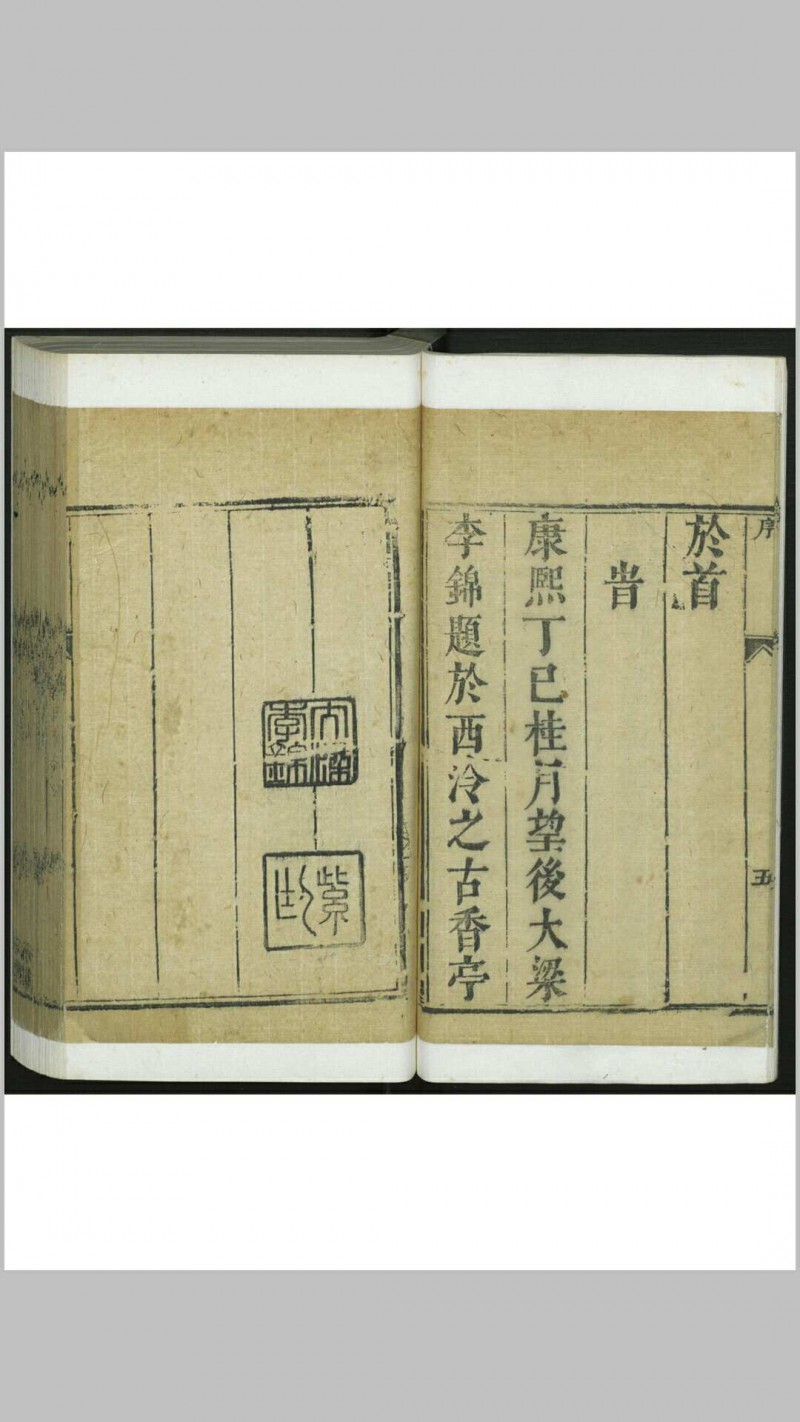 序
五
於首
旹
康熙丁巳桂月望後大梁
李錦題於西泠之古香亭
李錦
紫